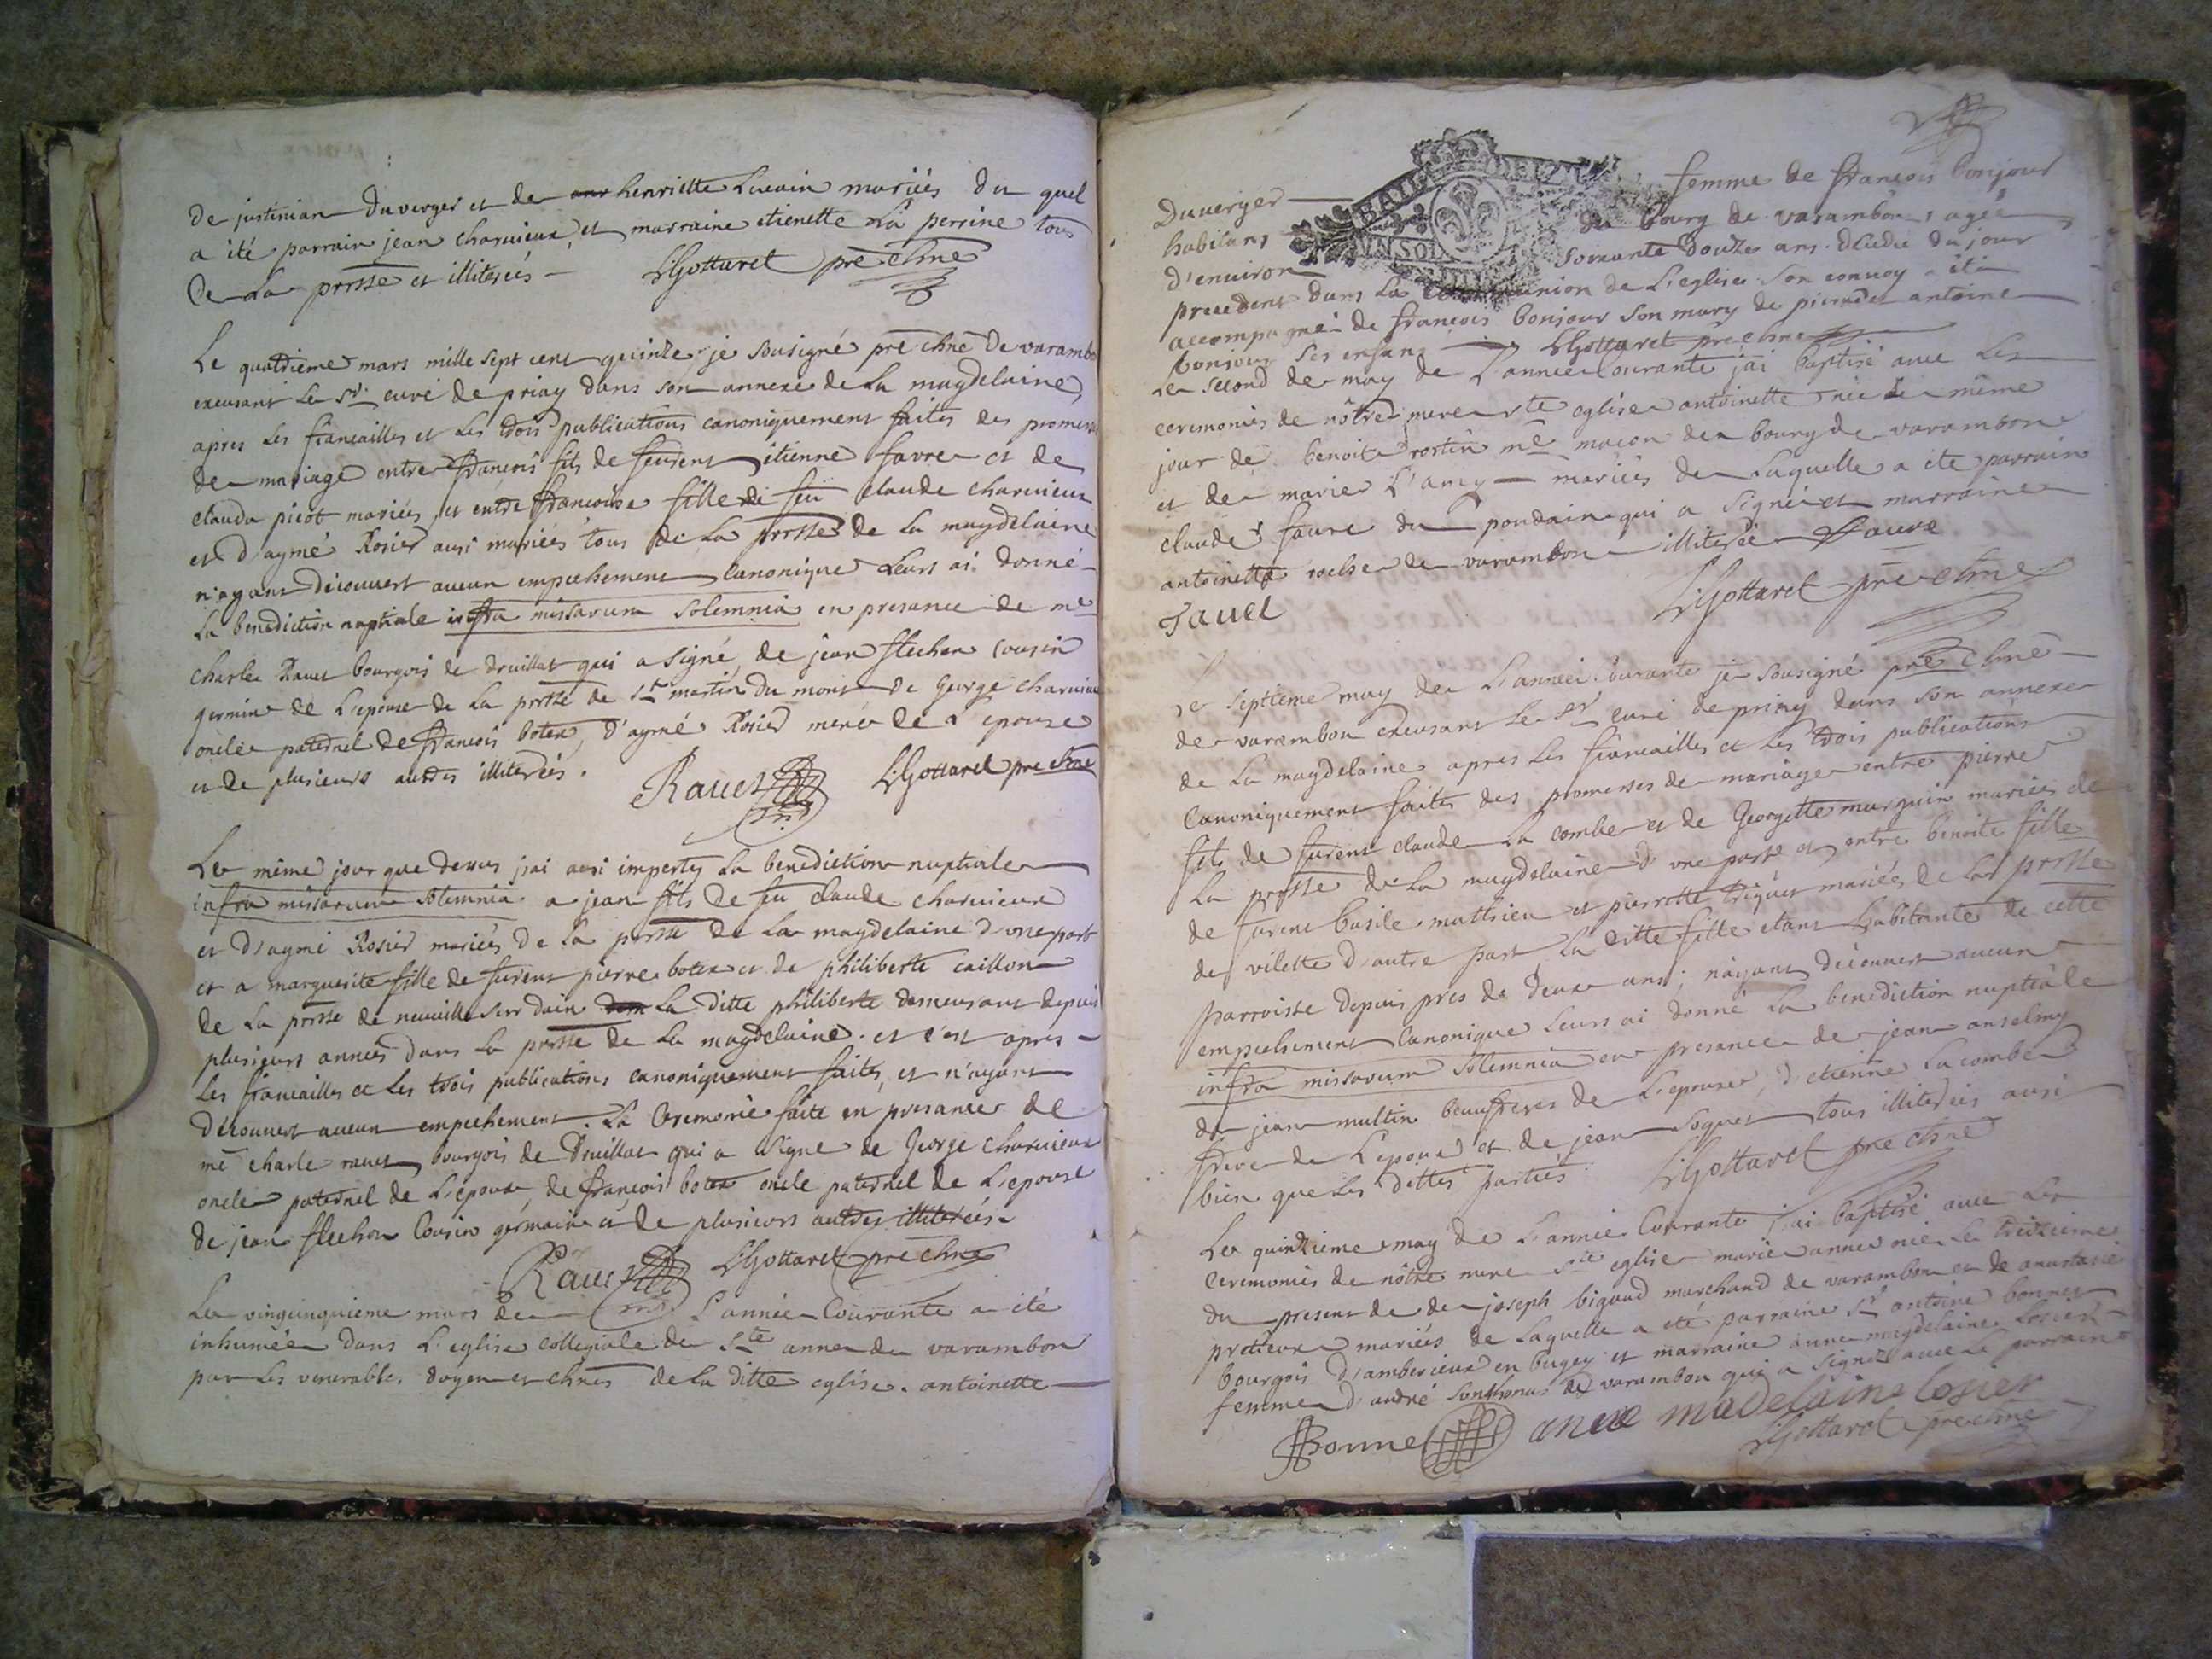 de justinian duverger et de henriette Lucain mariés du quel
a ité parrain jean charuieux et marraine etienette La perrine tous
de La prrsse et illiterés LGottaret pre chne
Le quatrieme mars mille sept cent quinze je sousigné pre chne de varambo
excusant Le sr curé de priay dans son annexe de La magdelaine,
apres Les fiancailles et Les trois publications canoniquement faites des promess
de mariage entre francois fils de feurent etienne favre et de
clauda picot mariés, et entre francoise fille de feu claude charuieux
et d'aymé Rosier ausi mariées tous de La prrsse de La magdelaine
n'ayant découvert aucun empechement canonique Leurs ai donné
La benediction nuptiale infra missarum solemnia en presance de me
charle Rauet bourgois de druillat qui a signé, de jean flechon cousin
germain de L'epouse de La prrsse de st martin du mont de George charuieu
oncle paternel de francois botex, d'aymé Rosier mere de L'epouse
et de plusieurs autres illiterées.
Rauet LGottaret pre chne
Le même jour que dessus j'ai ausi imperty La benediction nuptiale
infra missarum solemnia a jean fils de feu claude charuieux
et d'aymé Rosier mariés de La prrsse de La magdelaine d'une part
et a marguerite fille de furent pierre botex et de philiberte caillon
de La prrsse de neuville sur dain La ditte philiberte demeurant depuis
plusieurs années dans La prrsse de La magdelaine. et c'est apres
Les fiancailles et Les trois publications canoniquement faites, et n'ayant
découvert aucun empechement. La Ceremonie faite en presance de
me charle rauet bourgois de Druillat qui a signé de George charuieux
oncle paternel de L'epoux, de francois botex oncle paternel de L'epouse
de jean flechon Cousin germain et de plusieurs autres illiterées.
Rauet LGottaret pre chne
Le vingtcinquieme mars de L'année Courante a été
inhumée dans L'eglise collegiale de ste anne de varambon
par Les venerables doyen et chnes de La ditte eglise. antoinette
Duverger femme de francois bonjour
habitans du bourg de varambon, agée
d'environ soixante douze ans. décédée du jour
precedent dans La communion de L'eglise son convoy a été
accompagnéi de francois bonjour son mary de pierre et antoine
bonjour ses enfans LGottaret pre chne
Le second de may de L'année Courante j'ai baptisé avec Les
ceremonies de nôtre mere ste eglise antoinette née Le même
jour de benoit rostin me macon de bourg de varambon
et de marie L'amy mariés de Laquelle a été parrain
claude faure du poudain qui a signé et marraine
antoinette de varambon illiterée faure
LGottaret pre chne
Le septieme may de L'année Courante je sousigné pre chne
de varambon excusant Le sr curé de priay dans son annexe
de La magdelaine apres Les fiancailles et Les trois publications
Canoniquement faites des promesses de mariage entre pierre
fils de furent claude La combe et de Georgette murguin mariés de
La prrsse de La magdelaine d'une parte et entre benoite fille
de furent basile matthieu et pierrette triquet mariés de La prrsse
de vilette d'autre part La ditte fille etant habitante de cette
parroisse depuis pres de deux ans; n'ayant découvert aucun
empechement Canonique Leurs ai donné La benediction nuptiale
infra missarum solemnia en presance de jean anselmy
de jean multin beaufreres de L'epouse, d'etienne Lacombe
frere de L'epoux et de jean soquet tous illiterées ausi
bien que Les dittes parties LGottaret pre chne
Le quinzieme may de L'année Courrante j'ai baptisé avec Les
Ceremonies de nôtre mere ste eglise marie anne née Le treizieme
du present de joseph bigaud marchand de varambon et de anastasie
mariés de Laquelle a été parraine sr antoine bonnet
bourgois d'amberieux en bugey et marraine anne magdelaine Losier
femme d'andré sonthonas de varambon qui a signé avec Le parrain
Bonnet anne madelaine losier
LGottaret pre chne